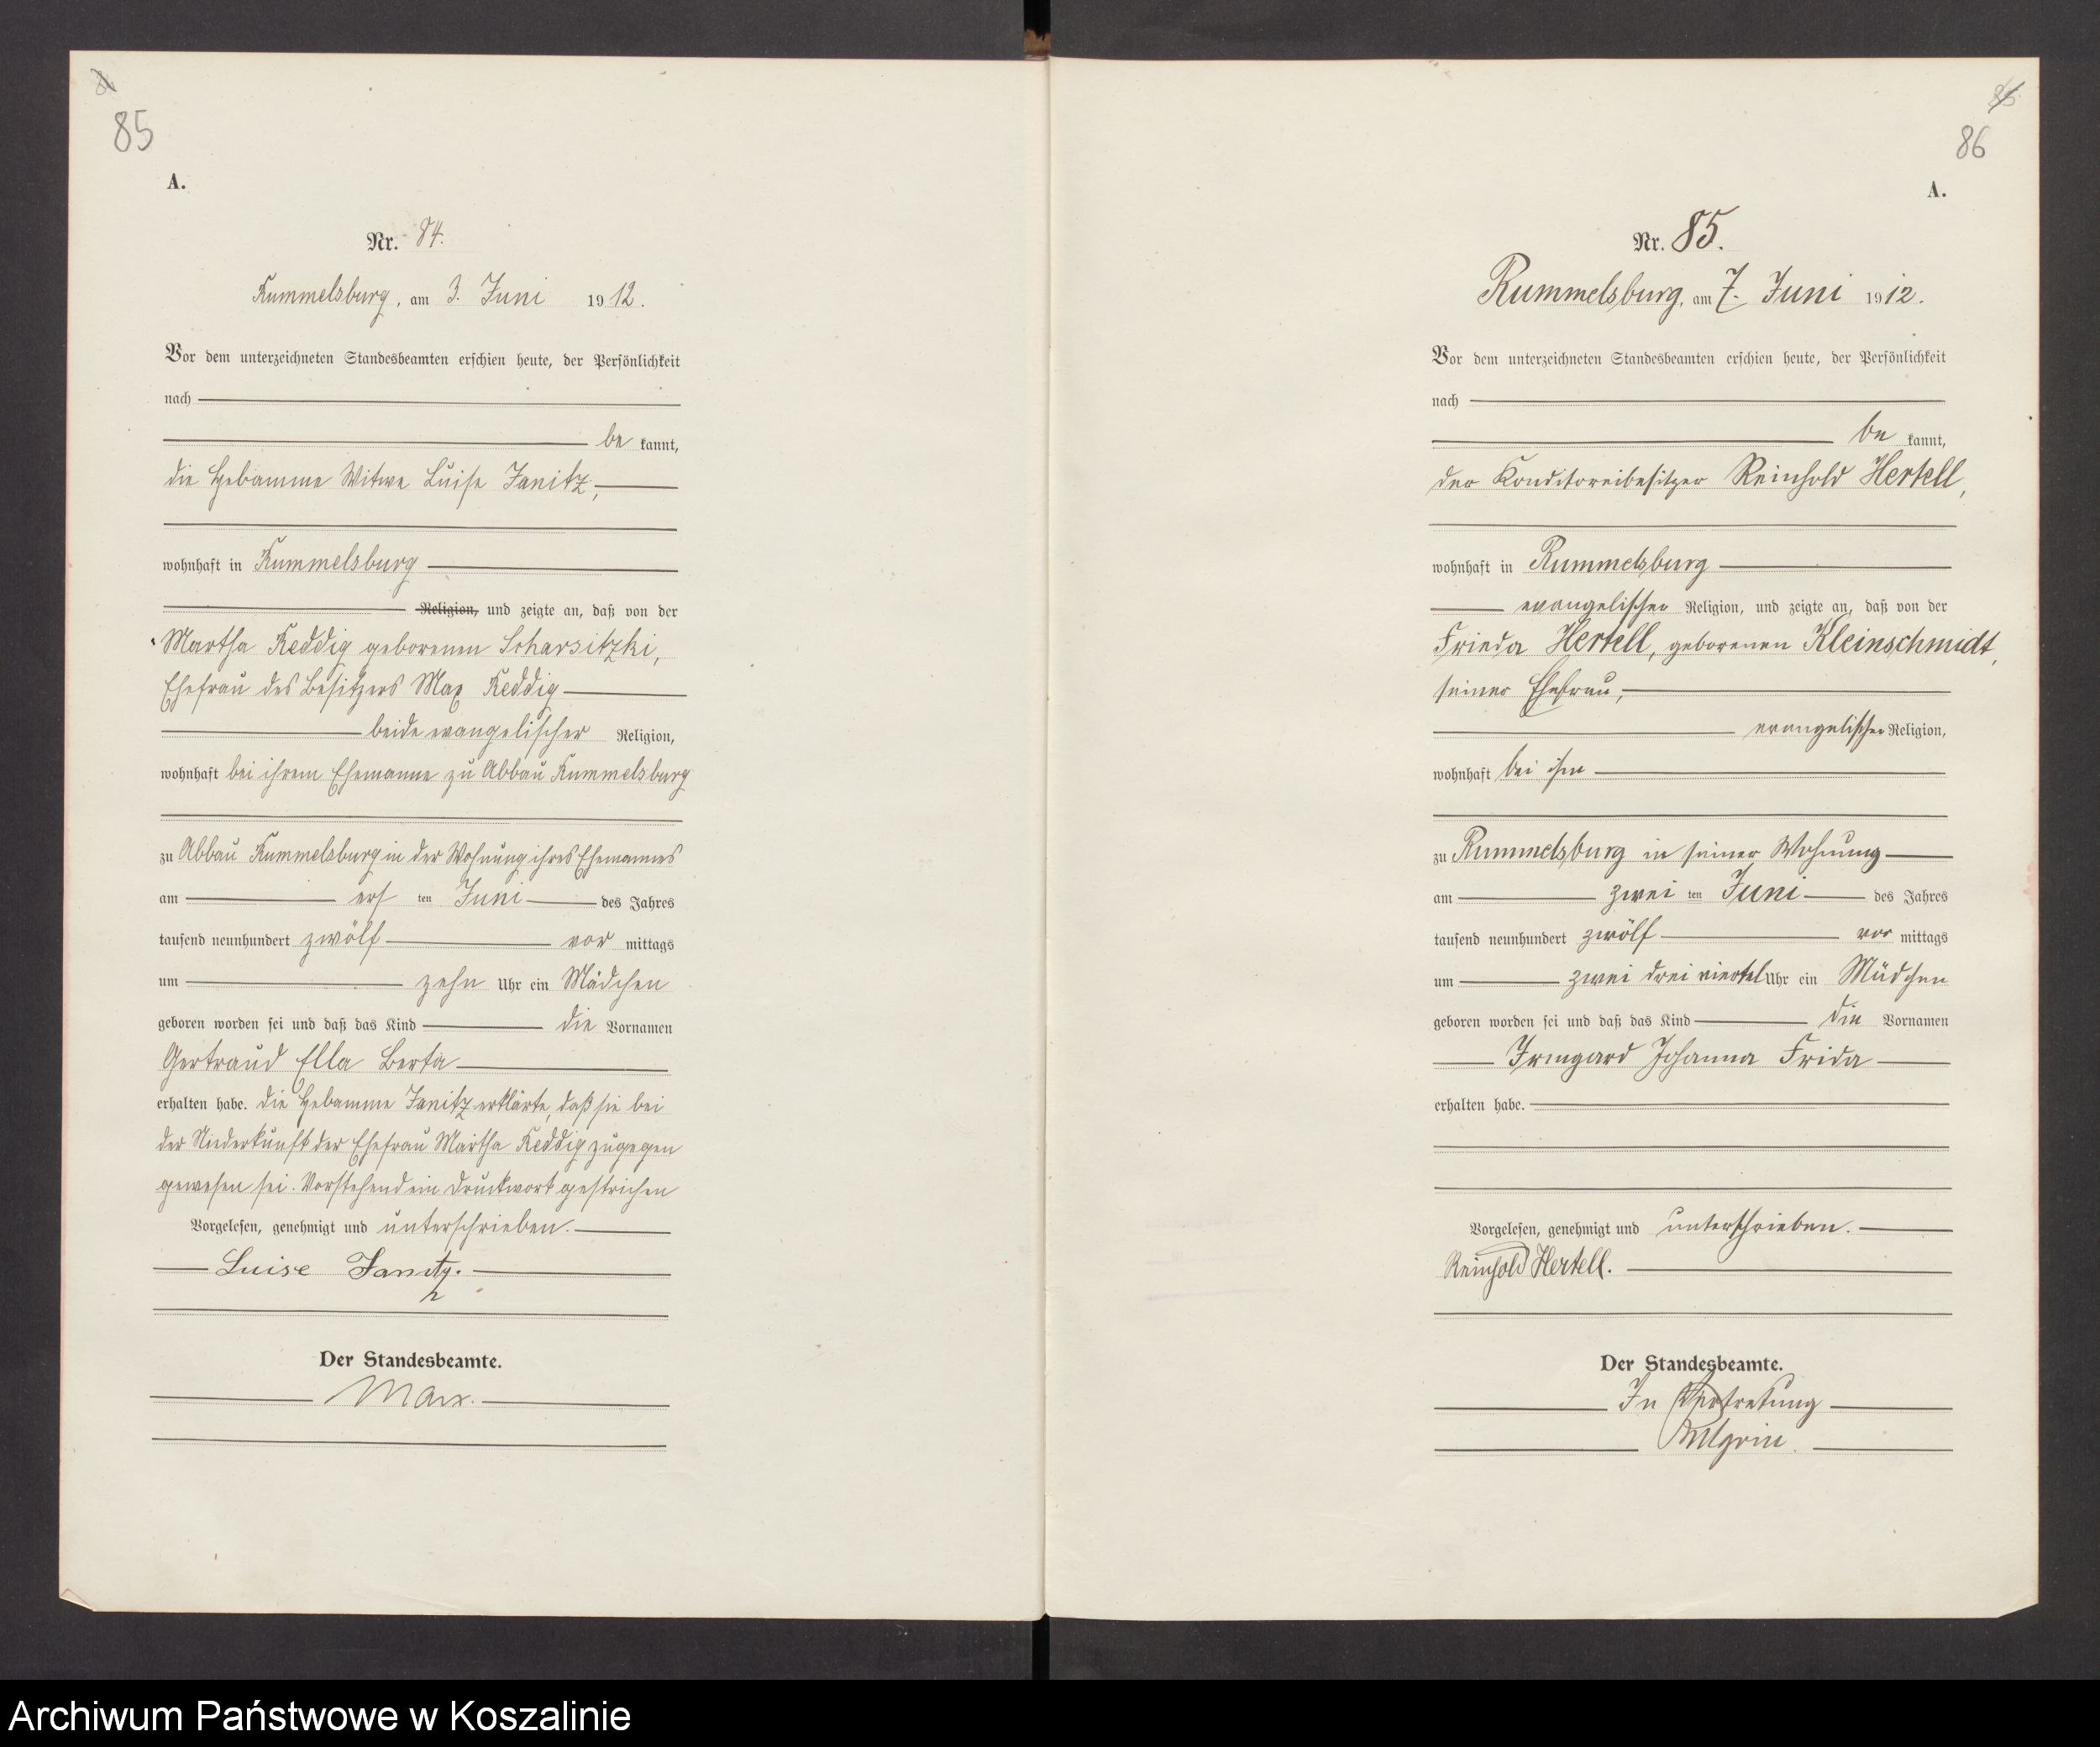 85
A.
Nr. 84.
Rummelsburg, am 3. Juni 1912.
Vor dem unterzeichneten Standesbeamten erschien heute, der Persönlichkeit
nach
be kannt,
die Hebamme Witwe Luise Janitz,
wohnhaft in Rummelsburg
Religion, und zeigte an, daß von der
Martha Reddig geborenen Scharsitzki,
Ehefrau des Besitzers Max Reddig
beide evangelischer Religion,
wohnhaft bei ihrem Ehemanne zu Abbau Rummelsburg
zu Abbau Rummelsburg in der Wohnung ihres Ehemannes
am ers ten Juni des Jahres
tausend neunhundert zwölf vor mittags
um zehn Uhr ein Mädchen
geboren worden sei und daß das Kind die Vornamen
Gertraud Ella Berta
erhalten habe. die Hebamme Janitz erklärte, daß sie bei
der Niederkunft der Ehefrau Martha Reddig zugegen
gewesen sei. Vorstehend ein Druckwort gestrichen
Vorgelesen, genehmigt und unterschrieben.
Luise Janitz.
Der Standesbeamte.
Marx.
86
A.
Nr. 85.
Rummelsburg, am 7. Juni 1912.
Vor dem unterzeichneten Standesbeamten erschien heute, der Persönlichkeit
nach
be kannt,
der Konditoreibesitzer Reinhold Hertell,
wohnhaft in Rummelsburg
evangelischer Religion, und zeigte an, daß von der
Frieda Hertell, geborenen Kleinschmidt,
seiner Ehefrau,
evangelischer Religion,
wohnhaft bei ihm
zu Rummelsburg in seiner Wohnung
am zwei ten Juni des Jahres
tausend neunhundert zwölf vor mittags
um zwei drei viertel Uhr ein Mädchen
geboren worden sei und daß das Kind die Vornamen
Irmgard Johanna Frida
erhalten habe.
Vorgelesen, genehmigt und unterschrieben.
Reinhold Hertell.
Der Standesbeamte.
In Vertretung
Archiwum Państwowe w Koszalinie